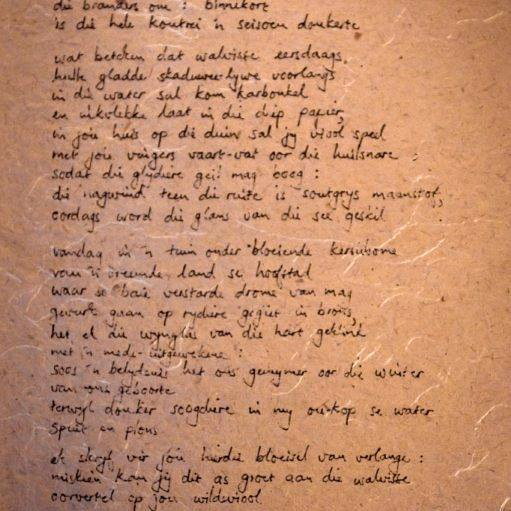 die branders om : binnekort
is die hele kontrei 'n seisoen donkerte
wat beteken dat walvisse eersdaags
hulle gladde skaduwee-lywe voorlangs
in die water sal kom karbonkel
en inkvlekke laat in die diep papier,
in jou huis op die duin sal jy viool speel
met jou vingers vaart-vat oor die huilsnare :
sodat die glydiere geil mag boog :
die nagwind teen die ruite is soutgrys maanstof,
oordags word die glans van die see geskil
vandag in 'n tuin onder bloeiende kersiebome
van 'n vreemde land se hoofstad
waar so baie verstarde drome van mag
gevurk gaan op rydiere gegiet in brons,
het ek die wynglas van die hart geklink
met 'n mede-uitgewekene :
soos 'n belydenis het ons gemymer oor die winter
van ons geboorte
terwyl donker soogdiere in my oorkop se water
spuit en plons
ek skryf vir jou hierdie bloeisel van verlange :
miskien kan jy dit as groet aan die walvisse
oorvertel op jou wildeviool.